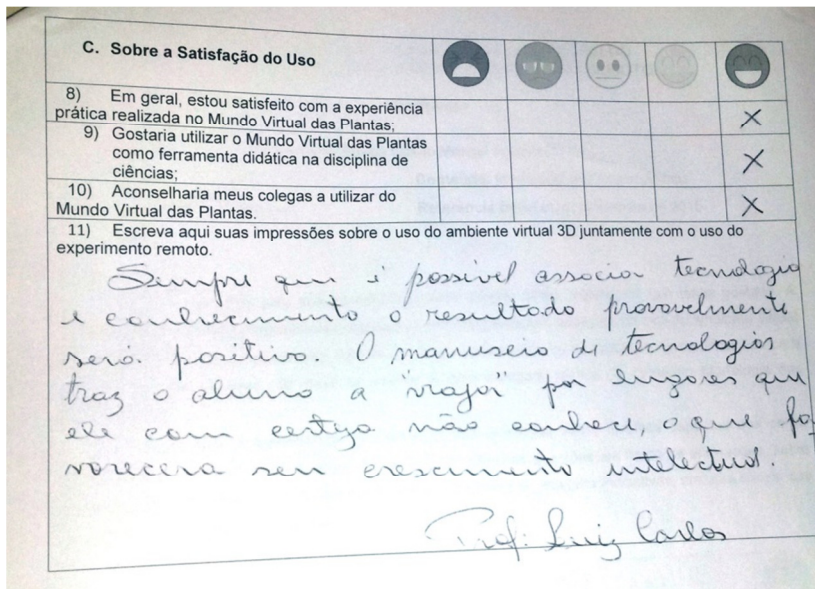 C. Sobre a Satisfação do Uso
8) Em geral, estou satisfeito com a experiência
prática realizada no Mundo Virtual das Plantas;
X
9) Gostaria utilizar o Mundo Virtual das Plantas
como ferramenta didática na disciplina de
ciências;
X
10) Aconselharia meus colegas a utilizar do
Mundo Virtual das Plantas.
X
11) Escreva aqui suas impressões sobre o uso do ambiente virtual 3D juntamente com o uso do
experimento remoto.
Sempre que é possível associar tecnologia
e conhecimento o resultado provavelmente
será positivo. O manuseio de tecnologias
traz o aluno a "viajar" por lugares que
ele com certeza não conhece, o que fa
vorecera seu crescimento intelectual.
Prof: Luiz Carlos